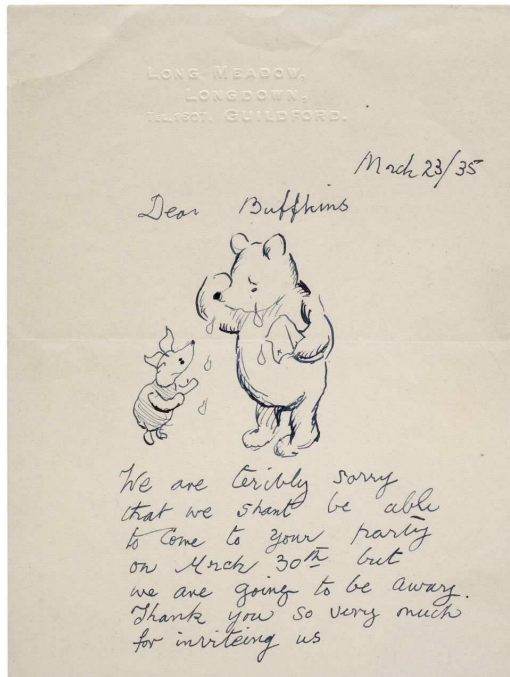 LONG MEADOW,
LONGDOWN,
TEL. 1307. GUILDFORD.
Mrch 23/35
Dear Buffkins
We are teribly sorry
that we shant be able
to come to your party
on Mrch 30th but
we are going to be awary.
Thank you so very much
for inviteing us